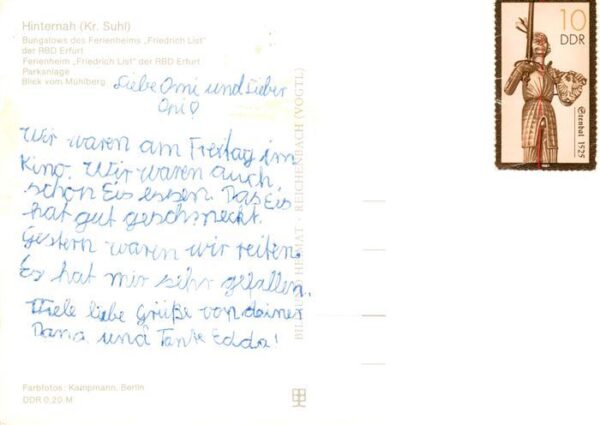 Hinternah (Kr. Suhl)
Bungalows des Ferienheims „Friedrich List"
der RBD Erfurt
Ferienheim „Friedrich List" der RBD Erfurt
Parkanlage
Blick vom Mühlberg
Liebe Omi und Lieber
Opi♡
Wir waren am Freitag im
Kino. Wir waren auch,
schön Eis essen. Das Eis
hat gut geschmeckt.
Gestern waren wir reiten.
Es hat mir sehr gefallen.
Viele liebe Grüße von deiner
Dana und Tante Edda!
Farbfotos: Kampmann, Berlin
DDR 0,20 M
BILD UND HEIMAT - REICHENBACH (VOGTL)
10
DDR
Stendal 1525